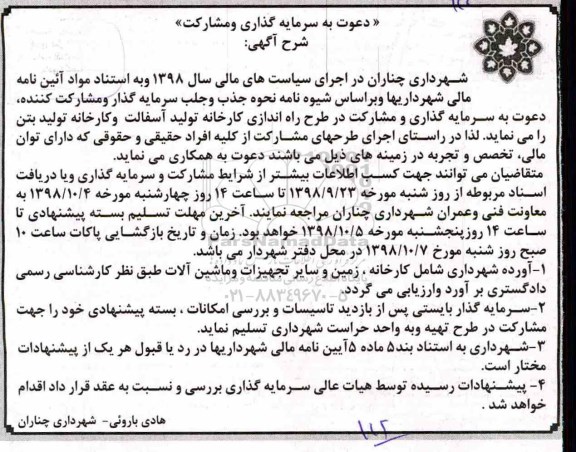 « دعوت به سرمایه گذاری ومشارکت»
شرح آگهی:
شهرداری چناران در اجرای سیاست های مالی سال ۱۳۹۸ وبه استناد مواد آئین نامه
مالی شهرداریها وبراساس شیوه نامه نحوه جذب وجلب سرمایه گذار ومشارکت کننده،
دعوت به سرمایه گذاری و مشارکت در طرح راه اندازی کارخانه تولید آسفالت وکارخانه تولید بتن
را می نماید. لذا در راستای اجرای طرحهای مشارکت از کلیه افراد حقیقی و حقوقی که دارای توان
مالی، تخصص و تجربه در زمینه های ذیل می باشند دعوت به همکاری می نماید.
متقاضیان می توانند جهت کسب اطلاعات بیشتر از شرایط مشارکت و سرمایه گذاری ویا دریافت
اسناد مربوطه از روز شنبه مورخه ۱۳۹۸/۹/۲۳ تا ساعت ۱۴ روز چهارشنبه مورخه ۱۳۹۸/۱۰/۴ به
معاونت فنی وعمران شهرداری چناران مراجعه نمایند. آخرین مهلت تسلیم بسته پیشنهادی تا
ساعت ۱۴ روزپنجشنبه مورخه ۱۳۹۸/۱۰/۵ خواهد بود. زمان و تاریخ بازگشایی پاکات ساعت ۱۰
صبح روز شنبه مورخ ۱۳۹۸/۱۰/۷ در محل دفتر شهردار می باشد.
۱-آورده شهرداری شامل کارخانه ، زمین و سایر تجهیزات وماشین آلات طبق نظر کارشناسی رسمی
دادگستری بر آورد وارزیابی می گردد.
۲-سرمایه گذار بایستی پس از بازدید تاسیسات و بررسی امکانات ، بسته پیشنهادی خود را جهت
مشارکت در طرح تهیه وبه واحد حراست شهرداری تسلیم نماید.
۳-شهرداری به استناد بند۵ ماده ۵آیین نامه مالی شهرداریها در رد یا قبول هر یک از پیشنهادات
مختار است.
۴- پیشنهادات رسیده توسط هیات عالی سرمایه گذاری بررسی و نسبت به عقد قرار داد اقدام
خواهد شد .
هادی باروئی- شهرداری چناران
ParsNamadData
۰۲۱-۸۸۳۴۹۶۷۰-۵